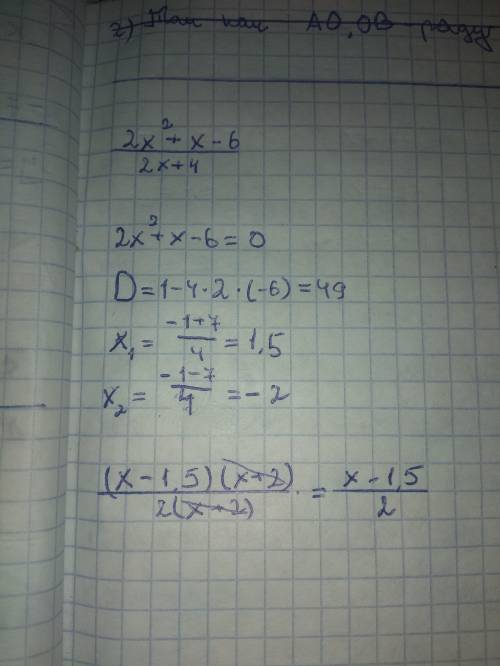 г) Так как АО, ОВ радиу
2x² + x - 6
2x+4
2x² + x - 6 = 0
D = 1 - 4 · 2 · (-6) = 49
x₁ = -1+7 / 4 = 1,5
x₂ = -1-7 / 4 = -2
(x - 1,5)(x+2) / 2(x+2) · = x - 1,5 / 2